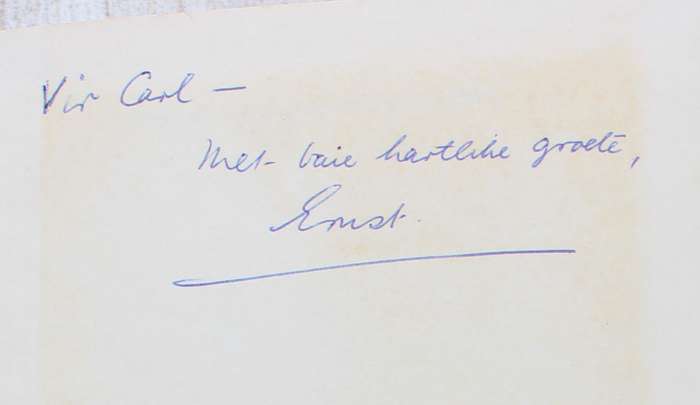 Vir Carl —
Met baie hartlike groete,
Ernst.